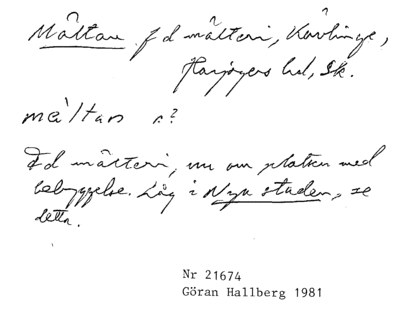 Mältan f d mälteri, Kävlinge,
Harjagers hd, Sk.
mäl'tan n?
F d mälteri, nu om platsen med
bebyggelse. Låg i Nya staden, se
detta.
Nr 21674
Göran Hallberg 1981